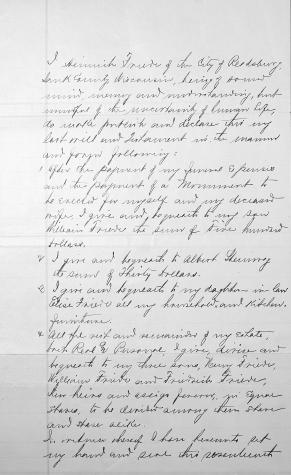 I Heinrich Friede of the City of Reedsburg,
Sauk County Wisconsin, being of sound
mind, memory and understanding, but
mindful of the uncertainty of human life,
do make publish and declare this my
last will and Testament in the manner
and form following:
1 After the payment of my funeral Expenses
and the payment of a Monument to
be erected for myself and my deceased
wife, I give and bequeath to my son
William Friede the sum of Five hundred
dollars.
2 I give and bequeath to Albert
the sum of Thirty Dollars.
3 I give and bequeath to my daughter in law
Elise Friede all my household and Kitchen
furniture.
4 All the rest and remainder of my estate,
both Real & Personal, I give, devise and
bequeath to my three sons, Henry Friede,
William Friede and Friedrich Friede,
their heirs and assign forever, in Equal
shares, to be divided among them share
and share alike.
In witness whereof I have hereunto set
my hand and seal this seventeenth